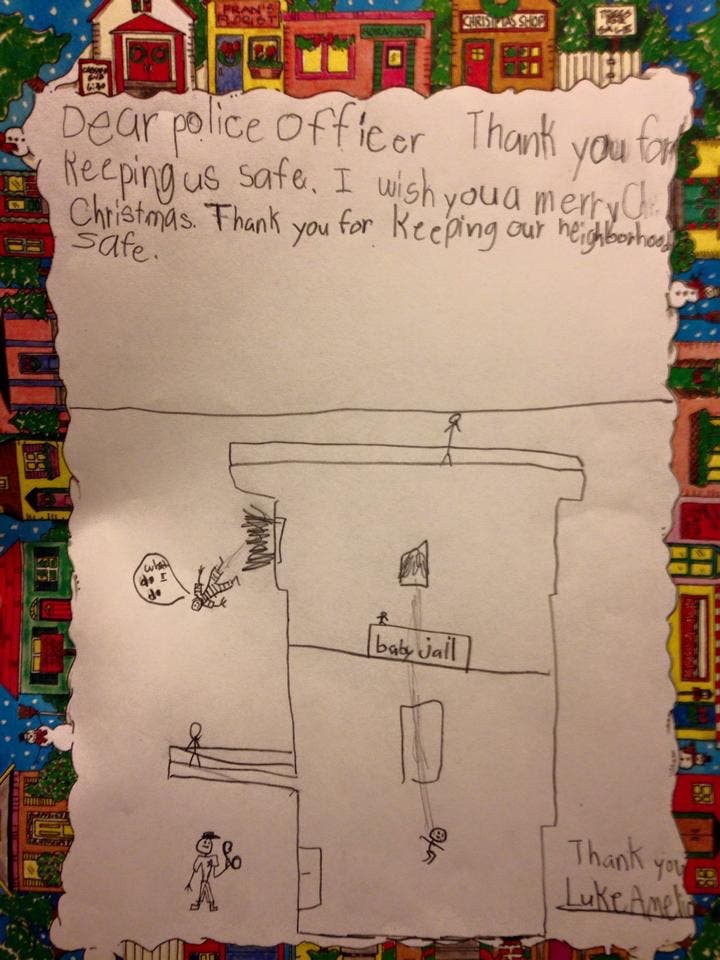 FRAN'S
FLORIST
CHRISTMAS SHOP
Dear police officer Thank you for
Keeping us safe. I wish you a merry Ch
Christmas. Thank you for Keeping our neighborhood
safe.
what
do I
do
baby jail
Thank you
Luke Ameli